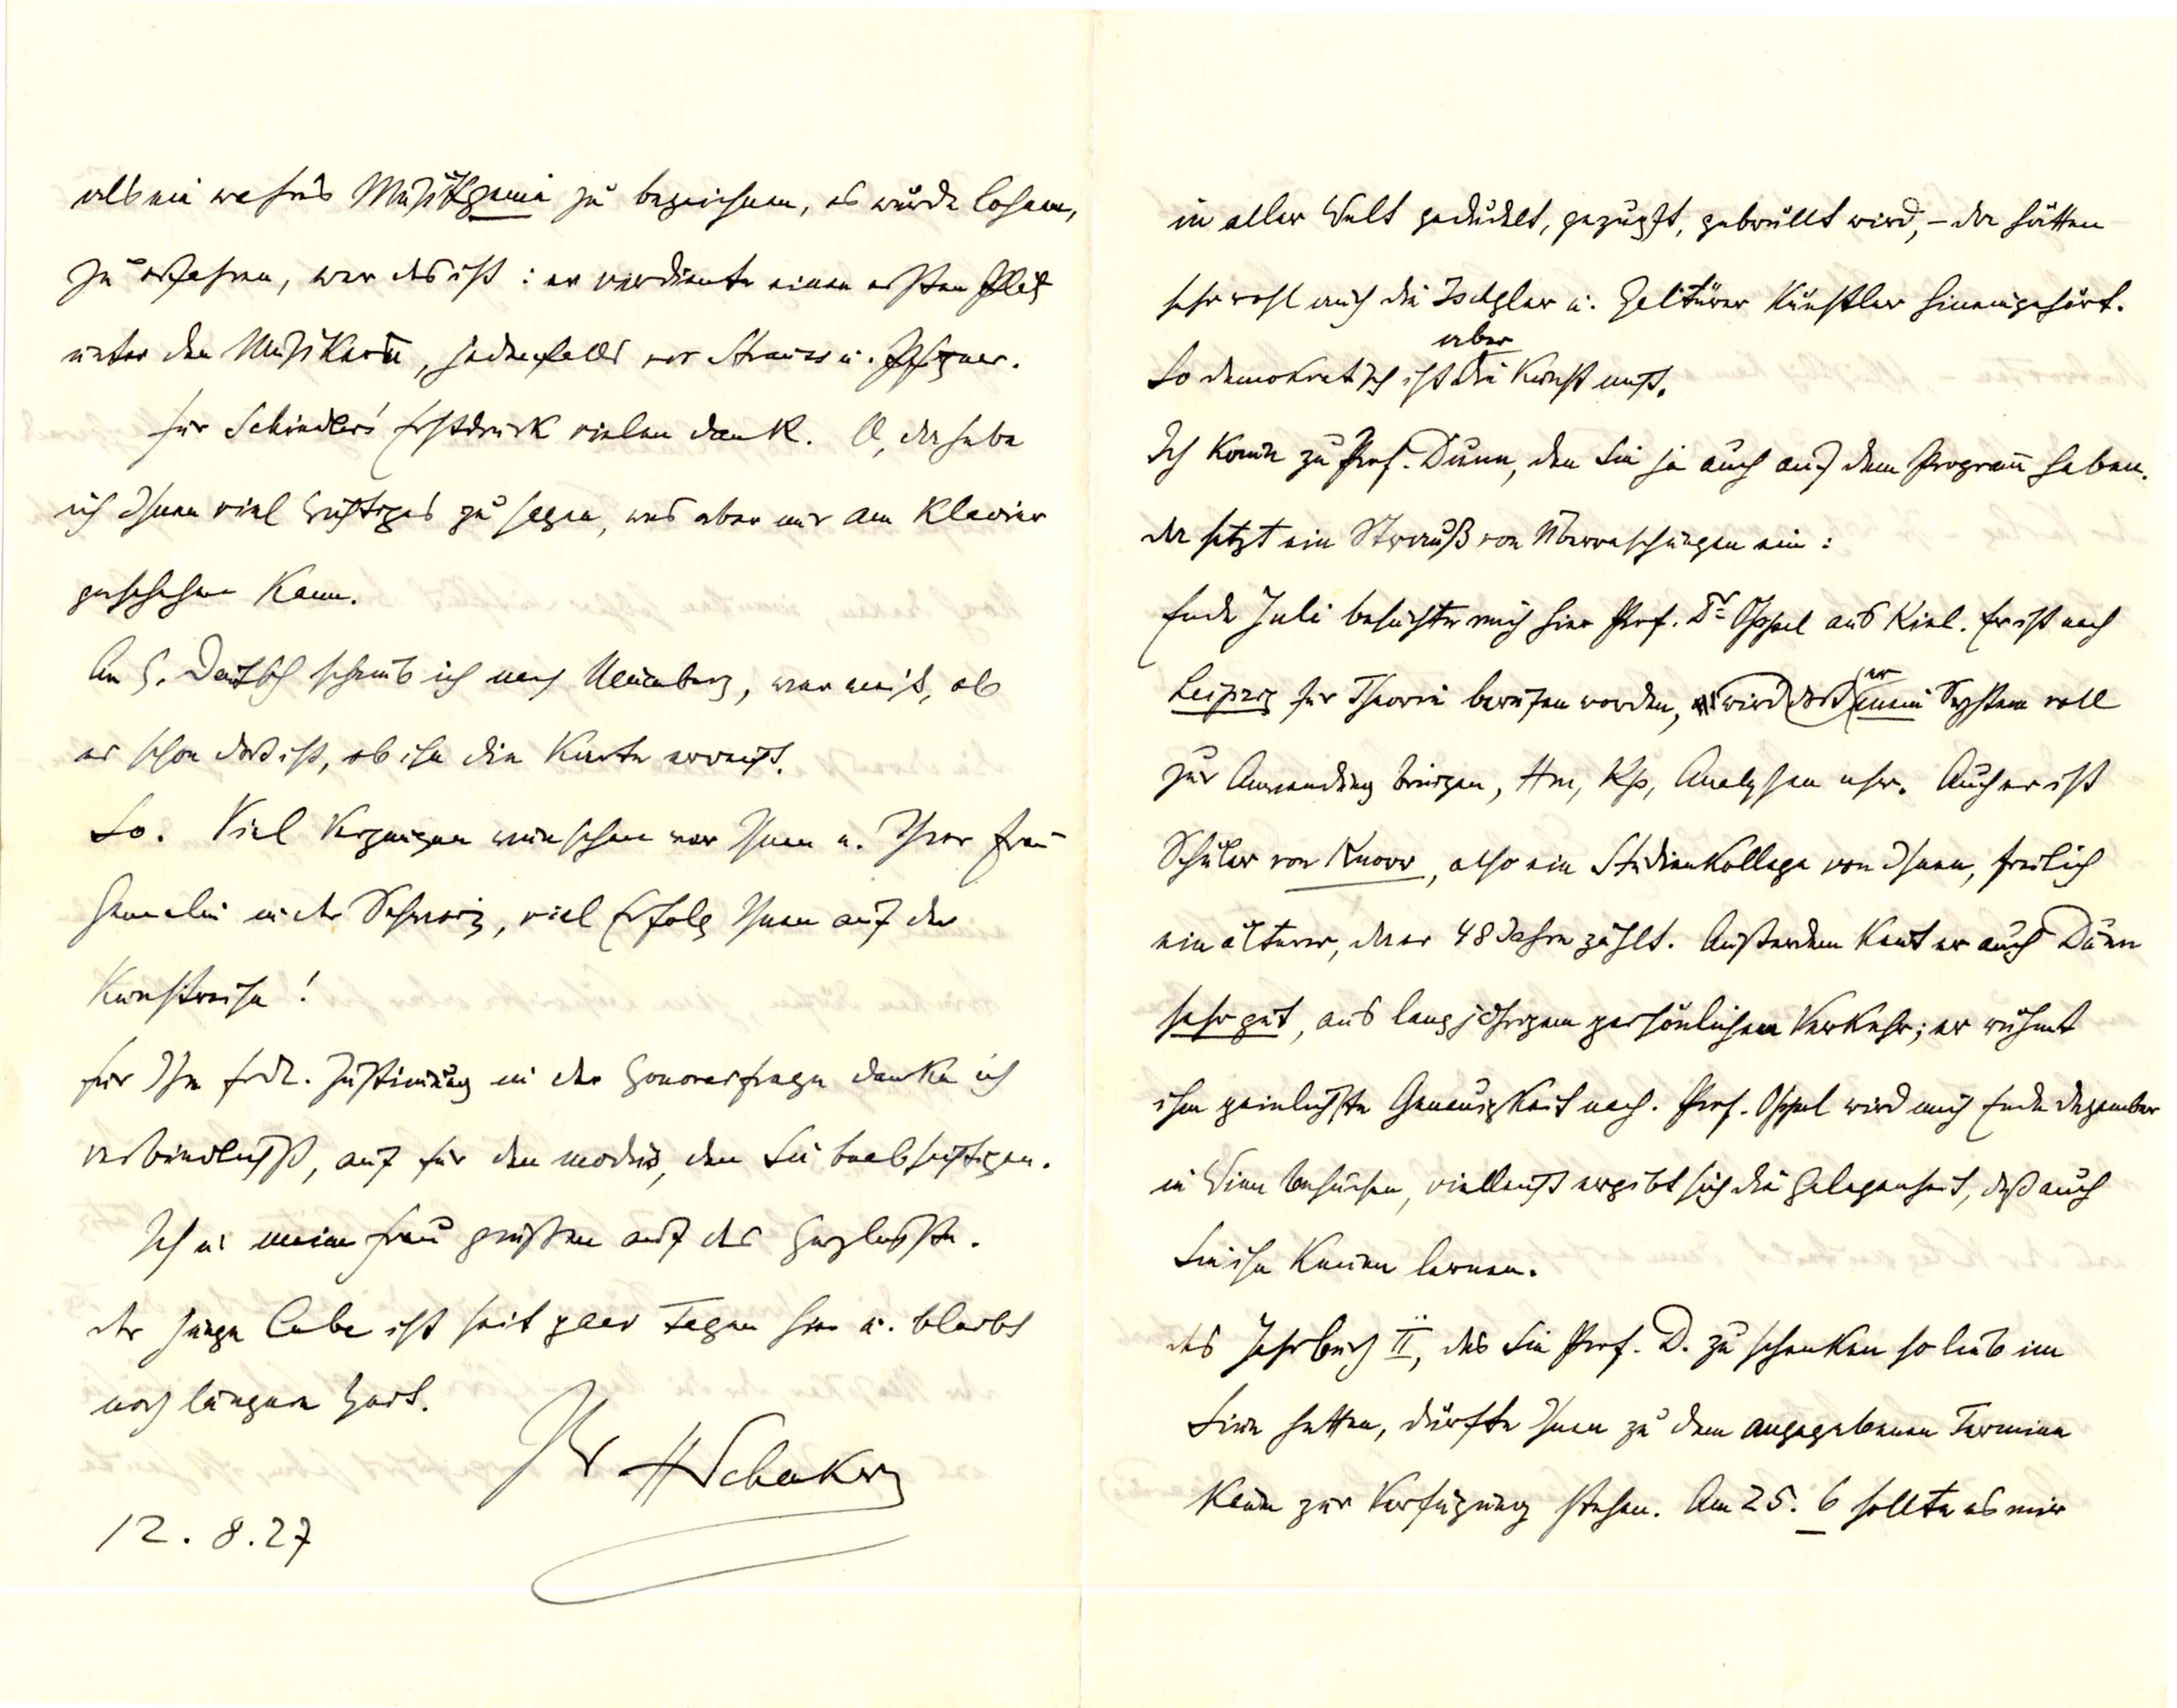 als ein wahres Musikgenie zu bezeichnen, es würde lohnen,
zu erfahren, wer das ist: er verdiente einen ersten Platz
unter den Musikern, jedenfalls vor Strauss u. Pfitzner.
Für Schindlers' Erstdruck vielen Dank. O, da habe
ich Ihnen viel Wichtiges zu sagen, was aber nur am Klavier
geschehen kann.
An H. Deutsch schrieb ich nach Nürnberg, wer weiß, ob
er schon dort ist, ob ihn die Karte erreicht.
So. Viel Vergnügen wünschen wir Ihnen u. Ihrer Frau
Gemalin in der Schweiz, viel Erfolg Ihnen auf der
Kunstreise!
Für Ihre frdl. Zustimmung in der Honorarfrage danke ich
verbindlichst, auch für den modus, den Sie beabsichtigen.
Ich u. meine Frau grüßen auf das Herzlichste.
Der junge Cube ist seit paar Tagen hier u. bleibt
noch längere Zeit.
Ihr HSchenker
12. 8. 27
in aller Welt gedudelt, gezupft, gebrüllt wird, – da hätten
sehr wohl auch die Ischgler u. Galtürer Künstler hineingehört.
aber
So demokratisch ist die Kunst nicht.
Ich komme zu Prof. Dunn, den Sie ja auch auf dem Program̅ haben.
Da setzt ein Strauß von Überraschungen ein:
Ende Juli besuchte mich hier Prof. Dr Oppel aus Kiel. Er ist nach
er
Leipzig für Theorie berufen worden, wird dort mein System voll
zur Anwendung bringen, Hm, Kp, Analysen usw. Auch er ist
Schüler von Knorr, also ein Studienkollege von Ihnen, freilich
ein älterer, da er 48 Jahre zählt. Außerdem kennt er auch Dunn
sehr gut, aus langjährigem persönlichem Verkehr; er rühmt
ihm peinlichste Genauigkeit nach. Prof. Oppel wird mich Ende Dezember
in Wien besuchen, vielleicht ergibt sich die Gelegenheit, daß auch
Sie ihn kennen lernen.
Das Jahrbuch II, das Sie Prof. D. zu schenken so lieb im
Sinn hatten, dürfte Ihnen zu dem angegebenen Termine
kaum zur Verfügung stehen. Am 25. 6 sollte es mir